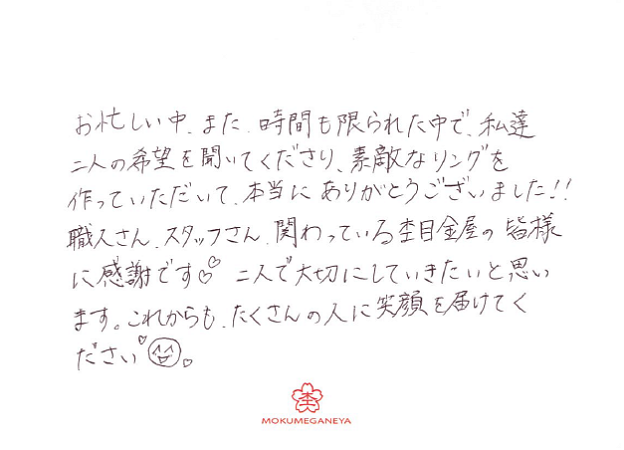 お忙しい中、また、時間も限られた中で、私達
二人の希望を聞いてくださり、素敵なリングを
作っていただいて、本当にありがとうございました!!
職人さん、スタッフさん、関わっている杢目金屋の皆様
に感謝です♡ 二人で大切にしていきたいと思い
ます。これからも、たくさんの人に笑顔を届けてく
ださい♡
杢
MOKUMEGANEYA